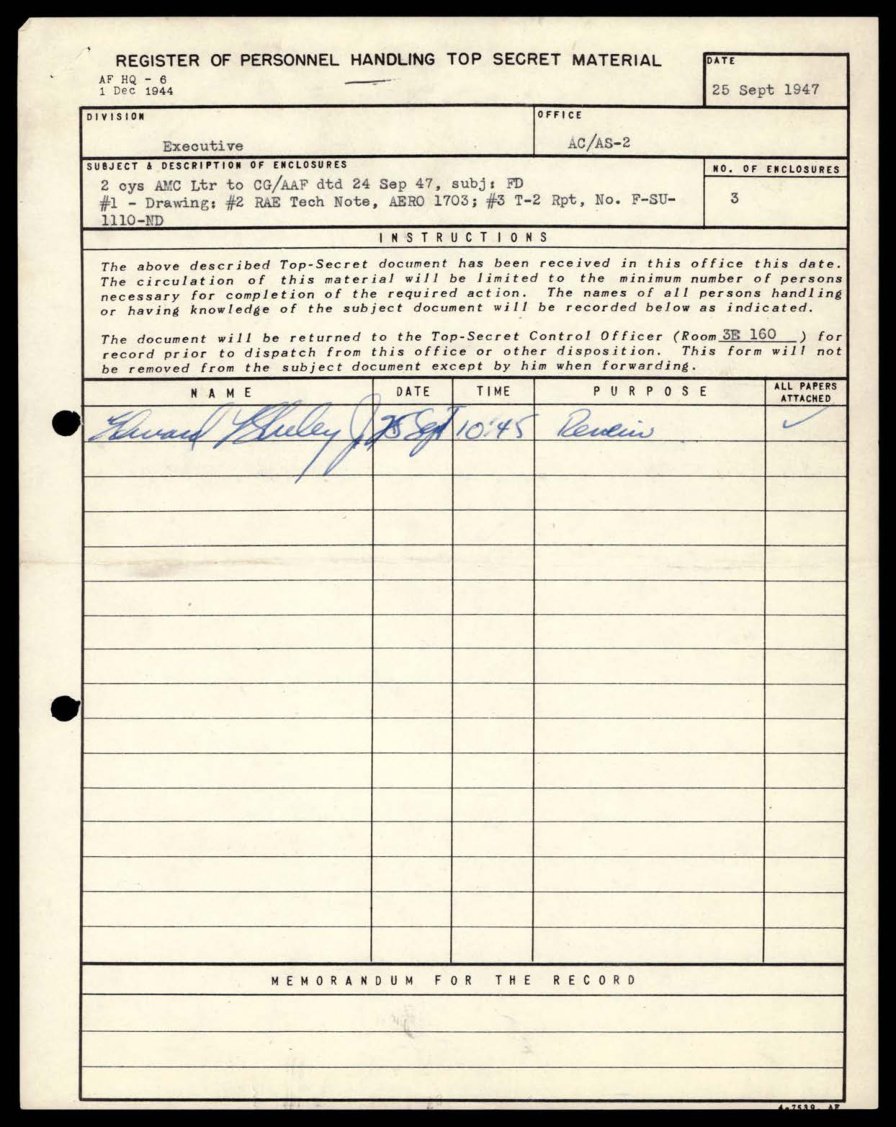 REGISTER OF PERSONNEL HANDLING TOP SECRET MATERIAL
AF HQ - 6
1 Dec 1944
DATE
25 Sept 1947
DIVISION
Executive
OFFICE
AC/AS-2
SUBJECT & DESCRIPTION OF ENCLOSURES
2 cys AMC Ltr to CG/AAF dtd 24 Sep 47, subj: FD
#1 - Drawing: #2 RAE Tech Note, AERO 1703; #3 T-2 Rpt, No. F-SU-
1110-ND
NO. OF ENCLOSURES
3
INSTRUCTIONS
The above described Top-Secret document has been received in this office this date.
The circulation of this material will be limited to the minimum number of persons
necessary for completion of the required action. The names of all persons handling
or having knowledge of the subject document will be recorded below as indicated.
The document will be returned to the Top-Secret Control Officer (Room 3E 160 ) for
record prior to dispatch from this office or other disposition. This form will not
be removed from the subject document except by him when forwarding.
NAME DATE TIME PURPOSE ALL PAPERS
ATTACHED
Edward 25 Sept 10:45 Review ✓
MEMORANDUM FOR THE RECORD
4-7539, AF